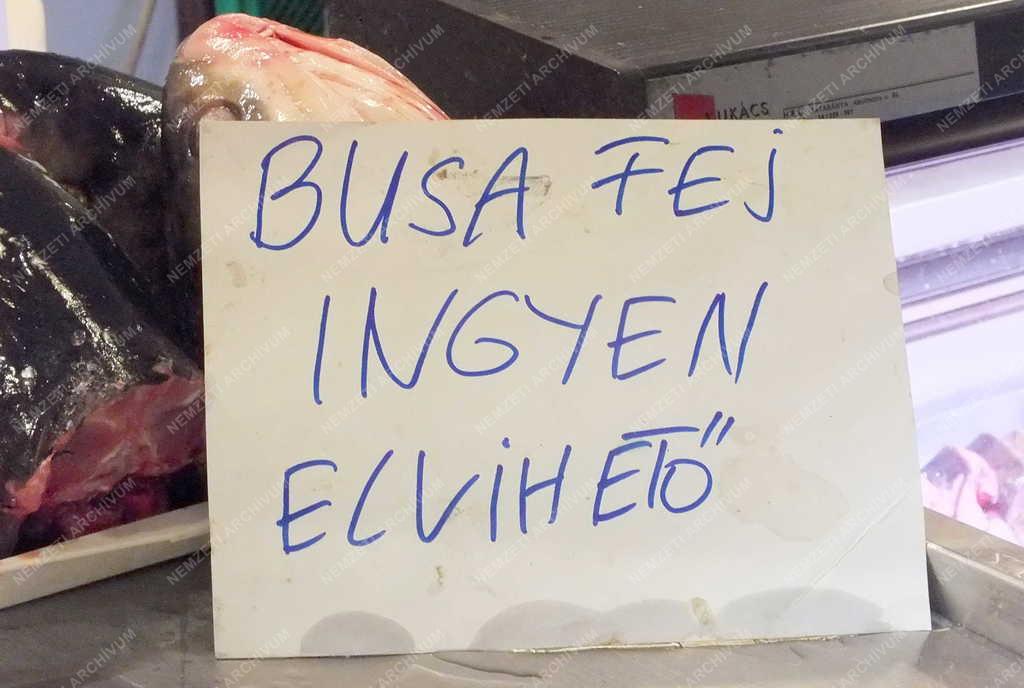 BUSA FEJ
INGYEN
ELVIHETŐ
LUKÁCS
NEMZETI ARCHÍVUM